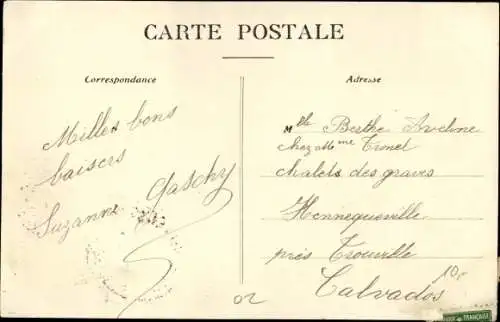 CARTE POSTALE
Correspondance
Adresse
Milles bons
baisers
Suzanne Gaschy
Mlle Berthe Aveline
chez Mme Tionel
chalets des graves
Hennequeville
près Trouville
Calvados
10c
02
FRANÇAISE